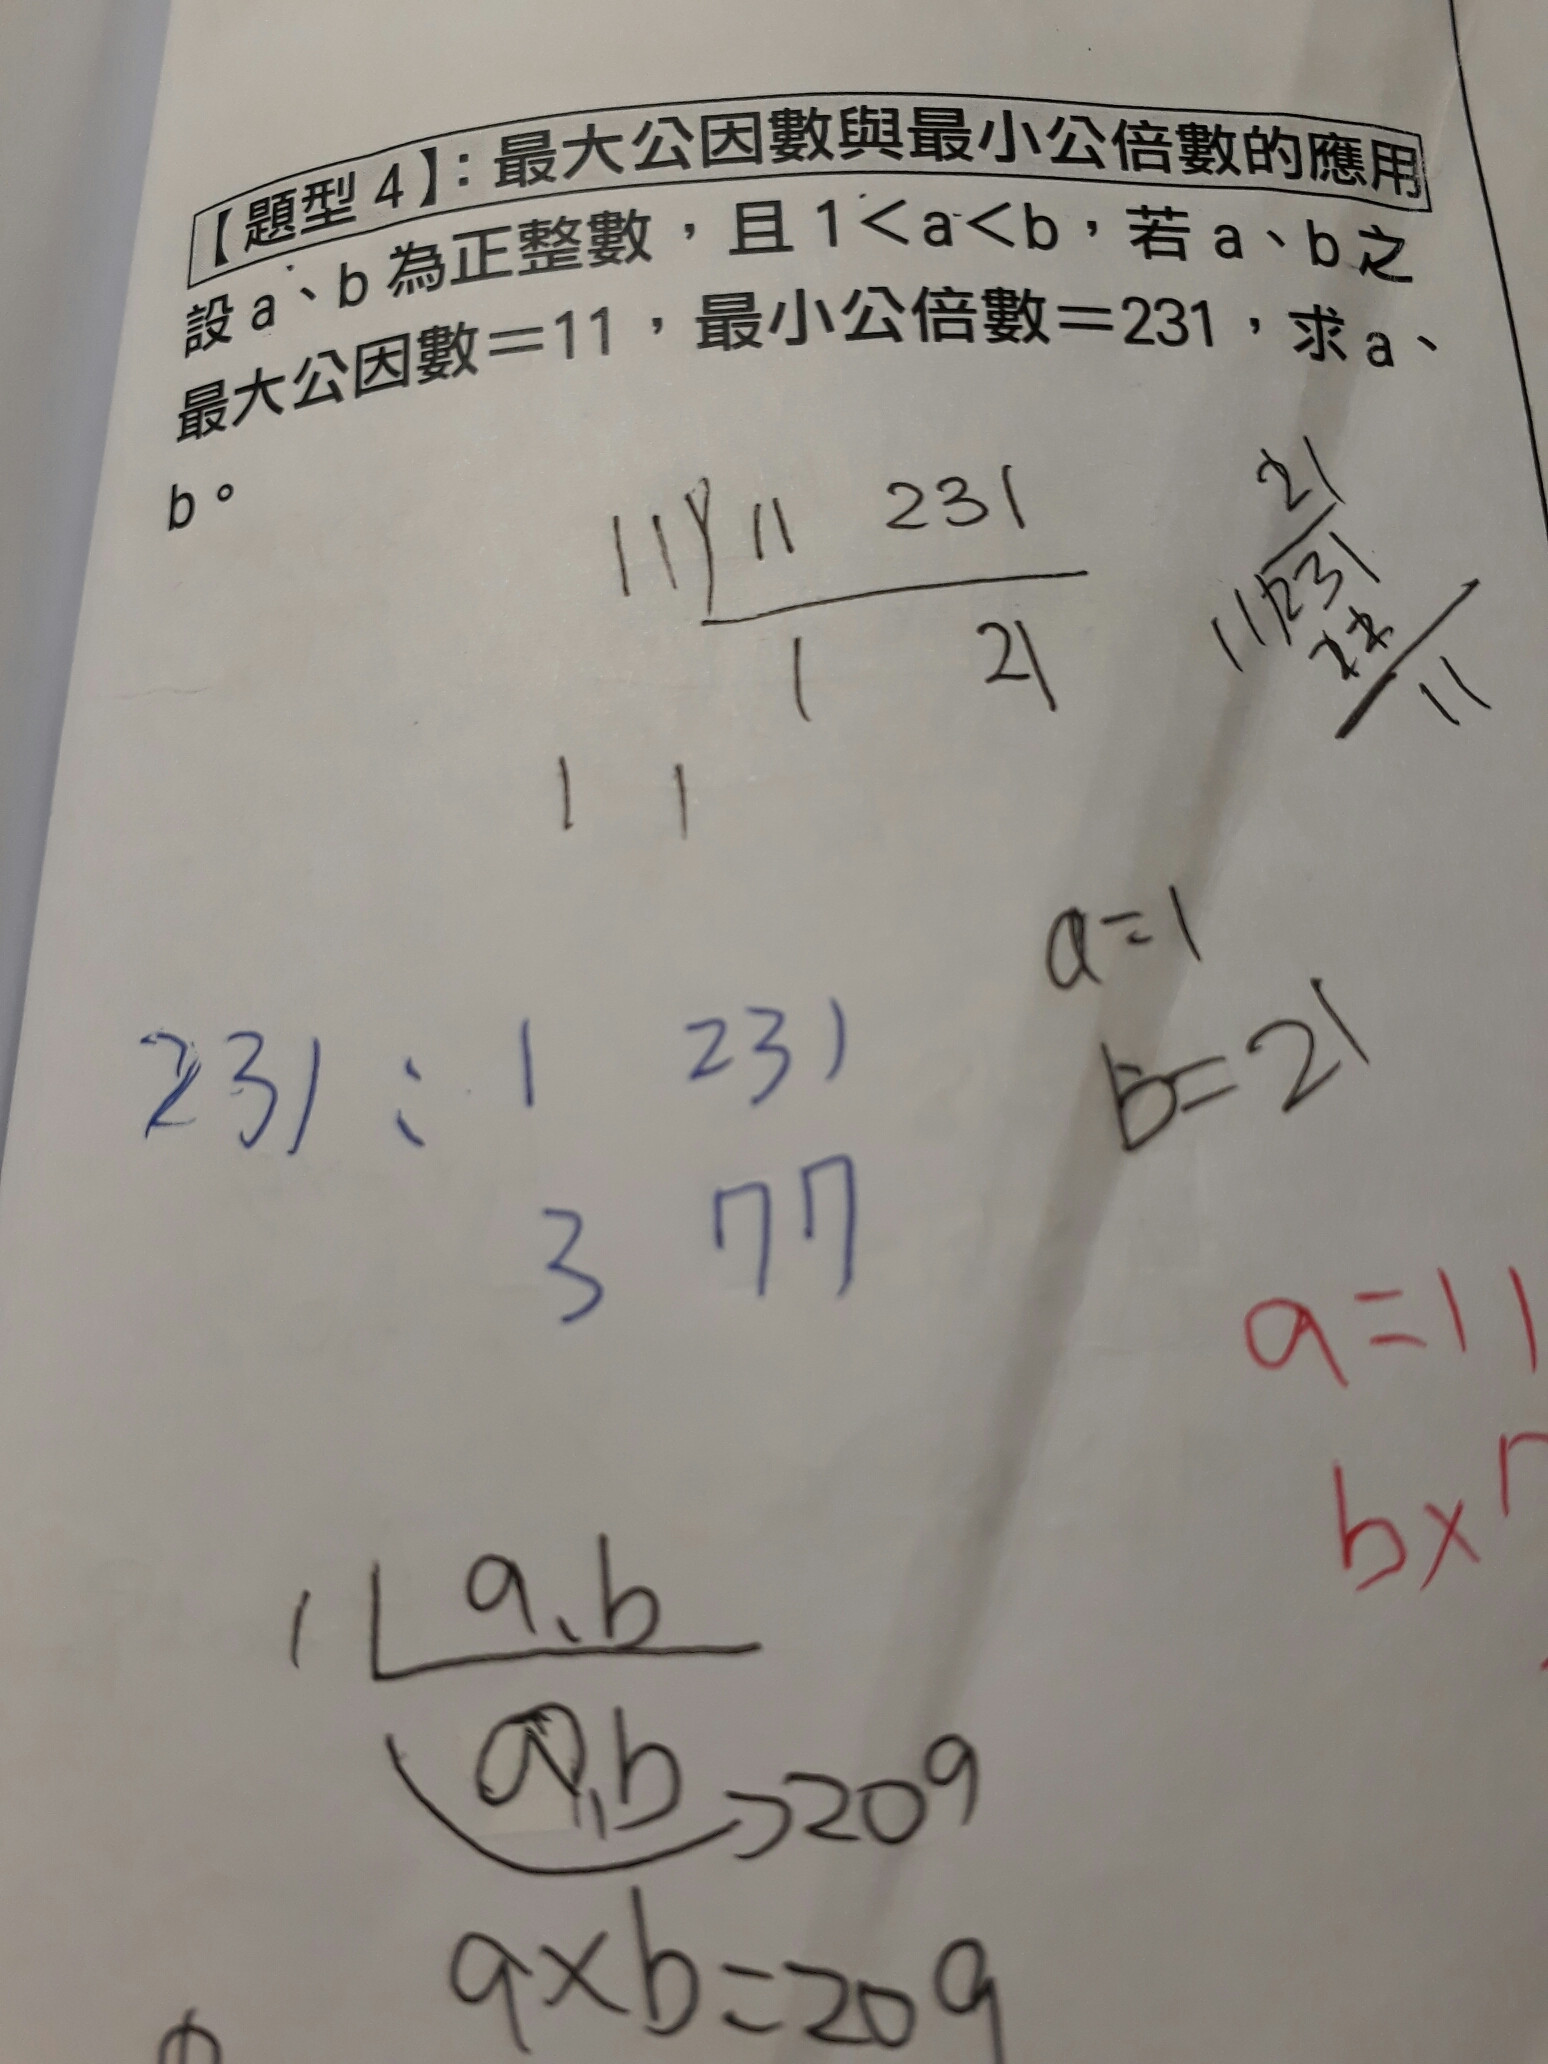 【題型 4】：最大公因數與最小公倍數的應用
設 a、b 為正整數，且 1＜a＜b，若 a、b 之
最大公因數＝11，最小公倍數＝231，求 a、
b。
11 11 231
1 21
21
11 231
22
11
1 1
a=1
b=21
231 : 1 231
3 77
a=11
b×7
1 a、b
a、b →209
a×b=209